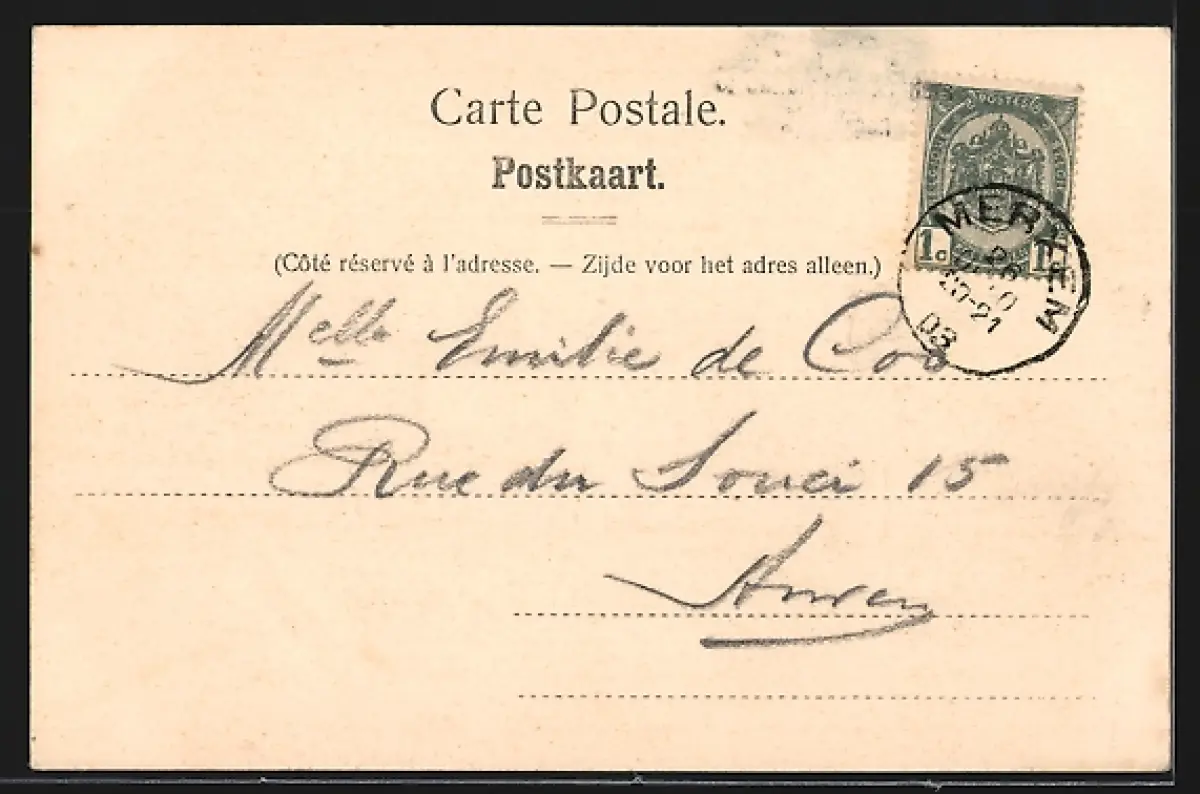 Carte Postale.
Postkaart.
(Côté réservé à l'adresse. — Zijde voor het adres alleen.)
POSTES
1c 1c
MERXEM
20-21
03
Melle Emilie de Coo
Rue du Souci 15
Anvers